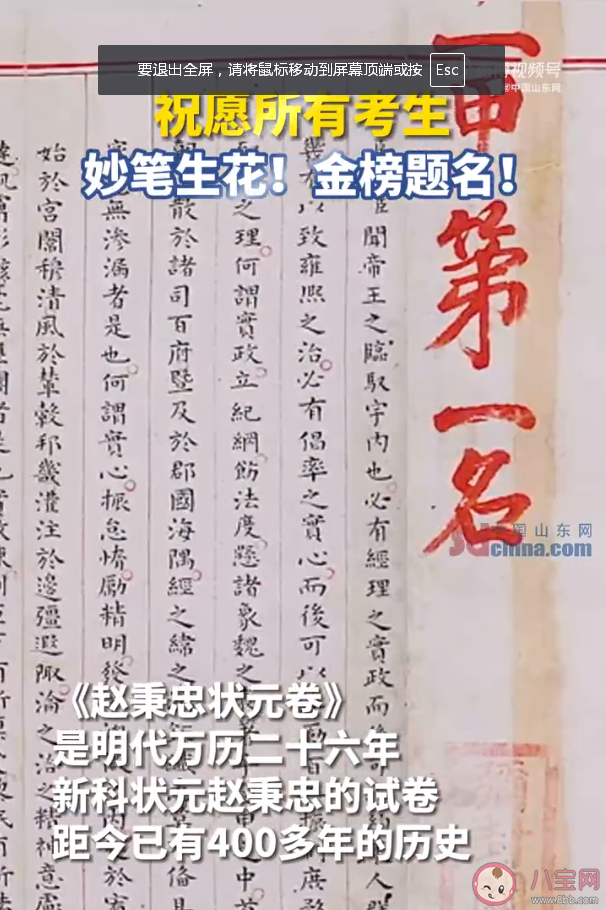 要退出全屏，请将鼠标移动到屏幕顶端或按 Esc
视频号
@中国山东网
祝愿所有考生
妙笔生花！金榜题名！
一甲第一名
聞帝王之臨馭宇內也必有經理之實政而
以致雍熙之治必有倡率之實心而後可以
之理何謂實政立紀綱飭法度懸諸象魏之
散於諸司百府暨及於郡國海隅經之緯之
無滲漏者是也何謂實心振怠惰勵精明發
始於宮闈穆清風於輦轂邦畿灌注於邊疆遐陬淪之洽之精神意慮
中国山东网
sdchina.com
《赵秉忠状元卷》
是明代万历二十六年
新科状元赵秉忠的试卷
距今已有400多年的历史
八宝网
www.8bb.com